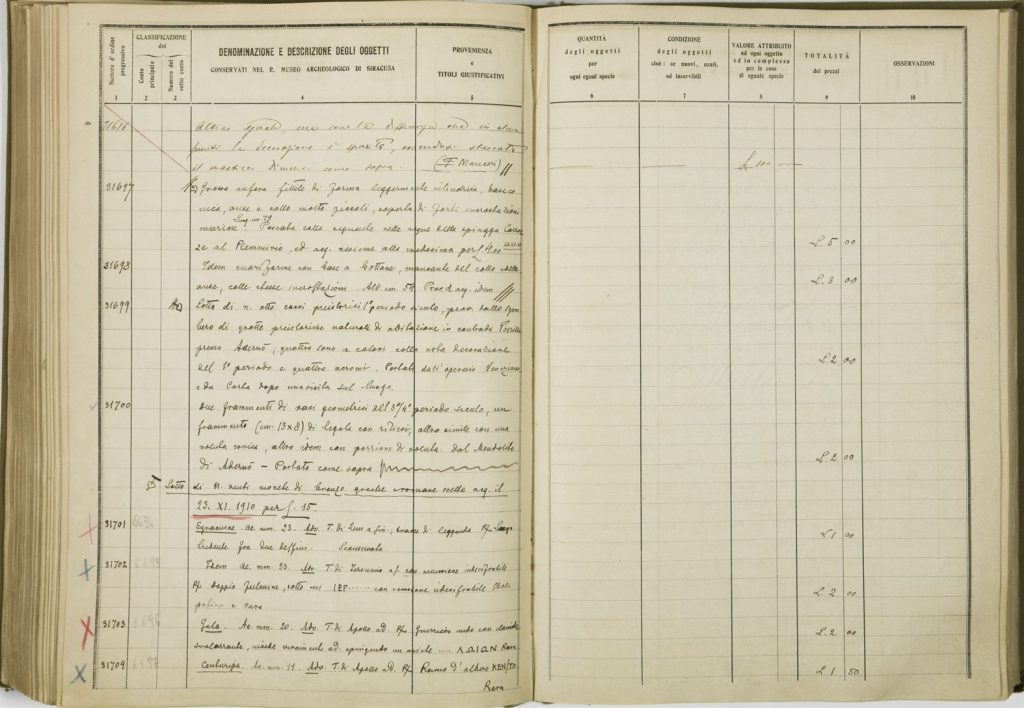 Numero d'ordine progressivo
CLASSIFICAZIONE
del
Conto principale
Numero del sotto conto
DENOMINAZIONE E DESCRIZIONE DEGLI OGGETTI
CONSERVATI NEL R. MUSEO ARCHEOLOGICO DI SIRACUSA
PROVENIENZA
e
TITOLI GIUSTIFICATIVI
1 2 3 4 5
QUANTITÀ
degli oggetti
per
ogni egual specie
CONDIZIONE
degli oggetti
cioè: se nuovi, usati,
od inservibili
VALORE ATTRIBUITO
ad ogni oggetto
ed in complesso
per le cose
di eguale specie
TOTALITÀ
dei prezzi
OSSERVAZIONI
6 7 8 9 10
31696 Altri eguali, ma con la differenza che in alcuni
punti la decorazione è sparita, essendosi staccato
il mastice. come sopra. (F. Mauceri)
£ 100
31697 Grossa anfora fittile di forma leggermente cilindrica, base co
nica, anse e collo molto piccoli, coperta di forti incrostazioni
marine. Pescata colla seguente nelle acque della spiaggia
al Plemmirio, ed acq. assieme alla medesima per £ 4.00
L. 5 00
31698 Idem cuoriforme con base a bottone, mancante del collo e delle
anse, colle stesse incrostazioni. Alt. cm. 54. Prov. ed acq. idem
L. 3 00
31699 Lotto di n. otto cocci preistorici 1° periodo siculo, prov. dallo sgom
bero di grotte preistoriche naturali di abitazione in contrada
presso Adernò; quattro sono a colori colla nota decorazione
del 1° periodo e quattro acromi. Portati dall'operaio Veneziano
e da Carta dopo una visita sul luogo.
L. 2 00
31700 Due frammenti di vasi geometrici del 3°/4° periodo siculo, un
frammento (cm. 13x8) di tegola con altro simile con una
voluta conica, altro idem con porzione di voluta. Dal Mendolito
di Adernò — Portato come sopra
L. 2 00
Lotto di n. venti monete di bronzo greche e romane scelte acq. il
23. XI. 1910 per £. 15.
31701 Syracusae. Ae. mm. 23. Adv. T. di Zeus a sin.; tracce di leggenda R/
tridente fra due delfini. Conservata
L. 1 00
31702 Idem Ae. mm. 23. Adv. T. di a s. con iscrizione indecifrabile
R/ doppio fulmine, sotto IEP...... con indecifrabile
e rara
L. 2 00
31703 Gela. Ae. mm. 20. Adv. T. di Apollo ad. R/ Guerriero nudo con clamide
svolazzante, ad. un ariete .... ΛΩΙΩΝ Rara
L. 2 00
31704 Centuripa. Ae. mm. 11. Adv. T. di Apollo ad. R/ Ramo d'albero KEN/TO.
Rara
L. 1 50